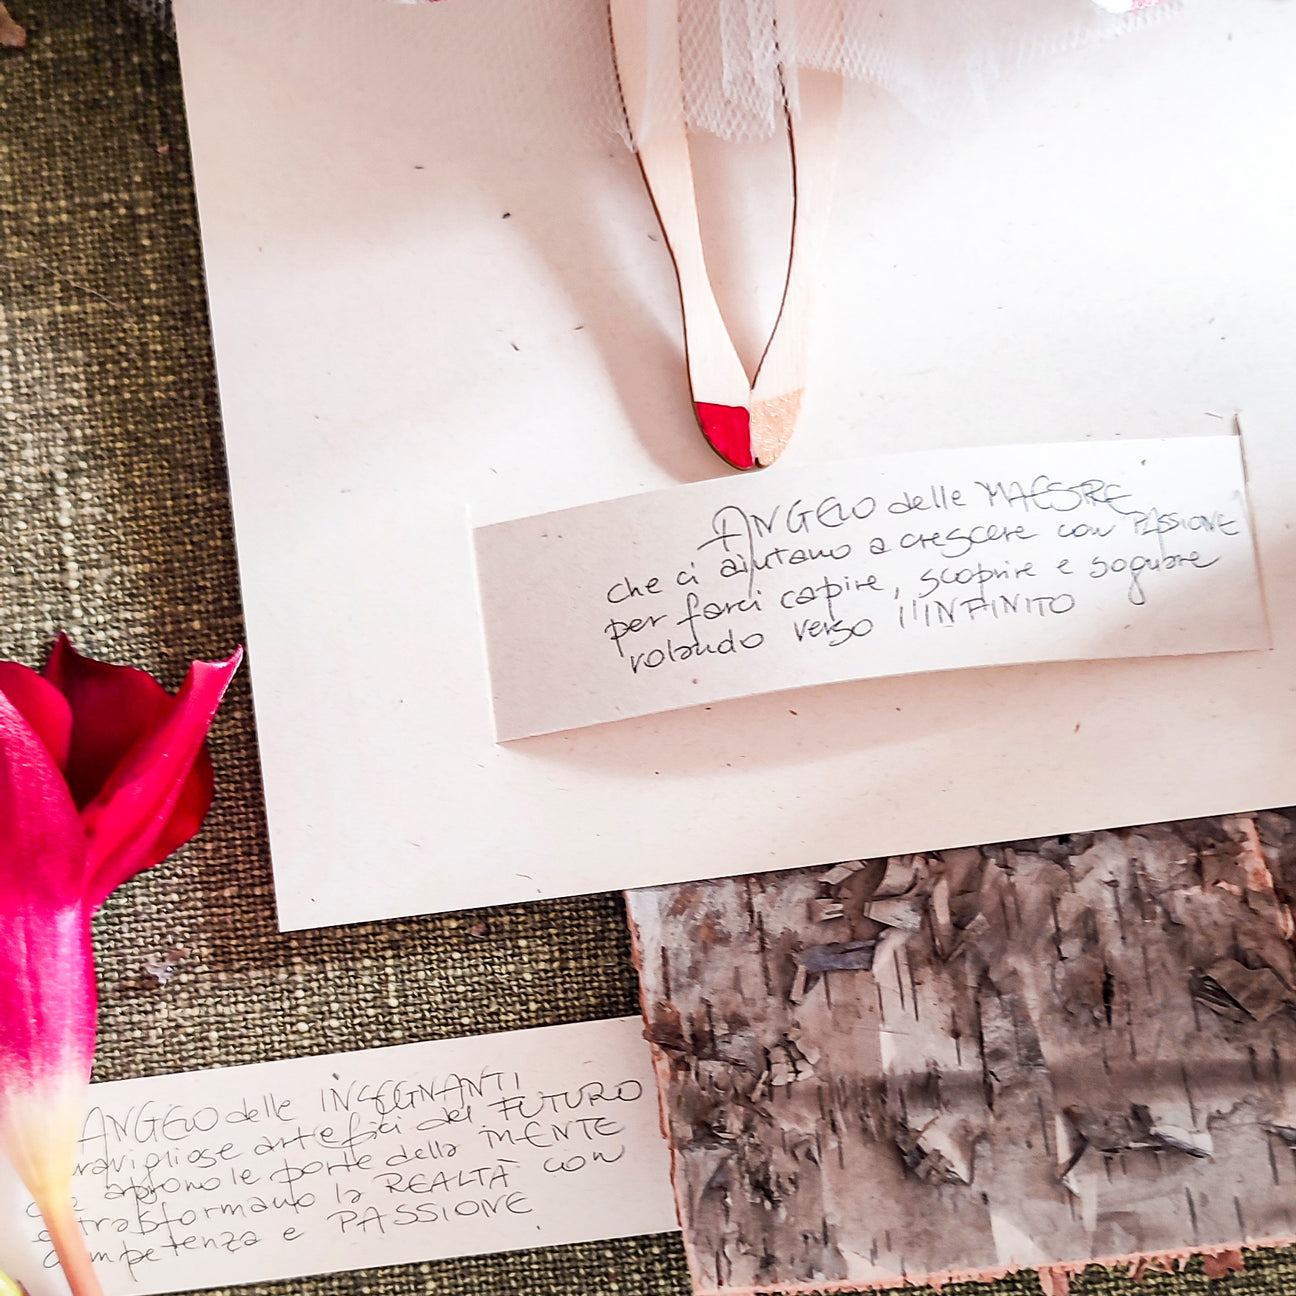 ANGELO delle MAESTRE
che ci aiutano a crescere con PASSIONE
per farci capire, scoprire e sognare
volando verso l'INFINITO
ANGELO delle INSEGNANTI
meravigliose artefici del FUTURO
che aprono le porte della MENTE
e trasformano la REALTÀ con
competenza e PASSIONE